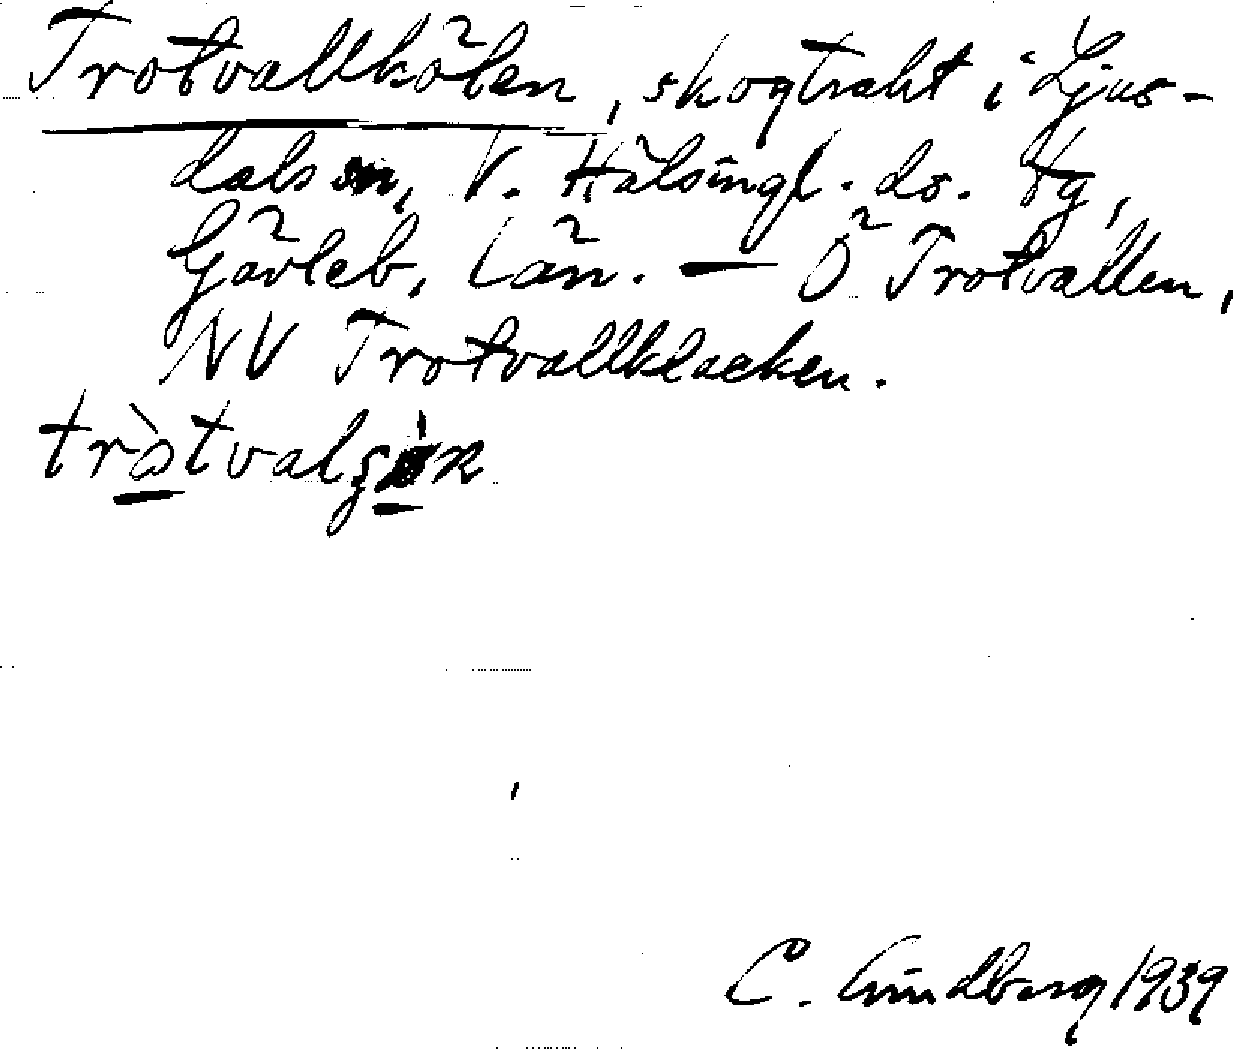 Trotvallkölen, skogtrakt i Ljus-
dals sn, V. Hälsingl. ds. tg,
Gävleb. län. — Ö Trotvallen,
NV Trotvallklacken.
C. Lindberg 1939